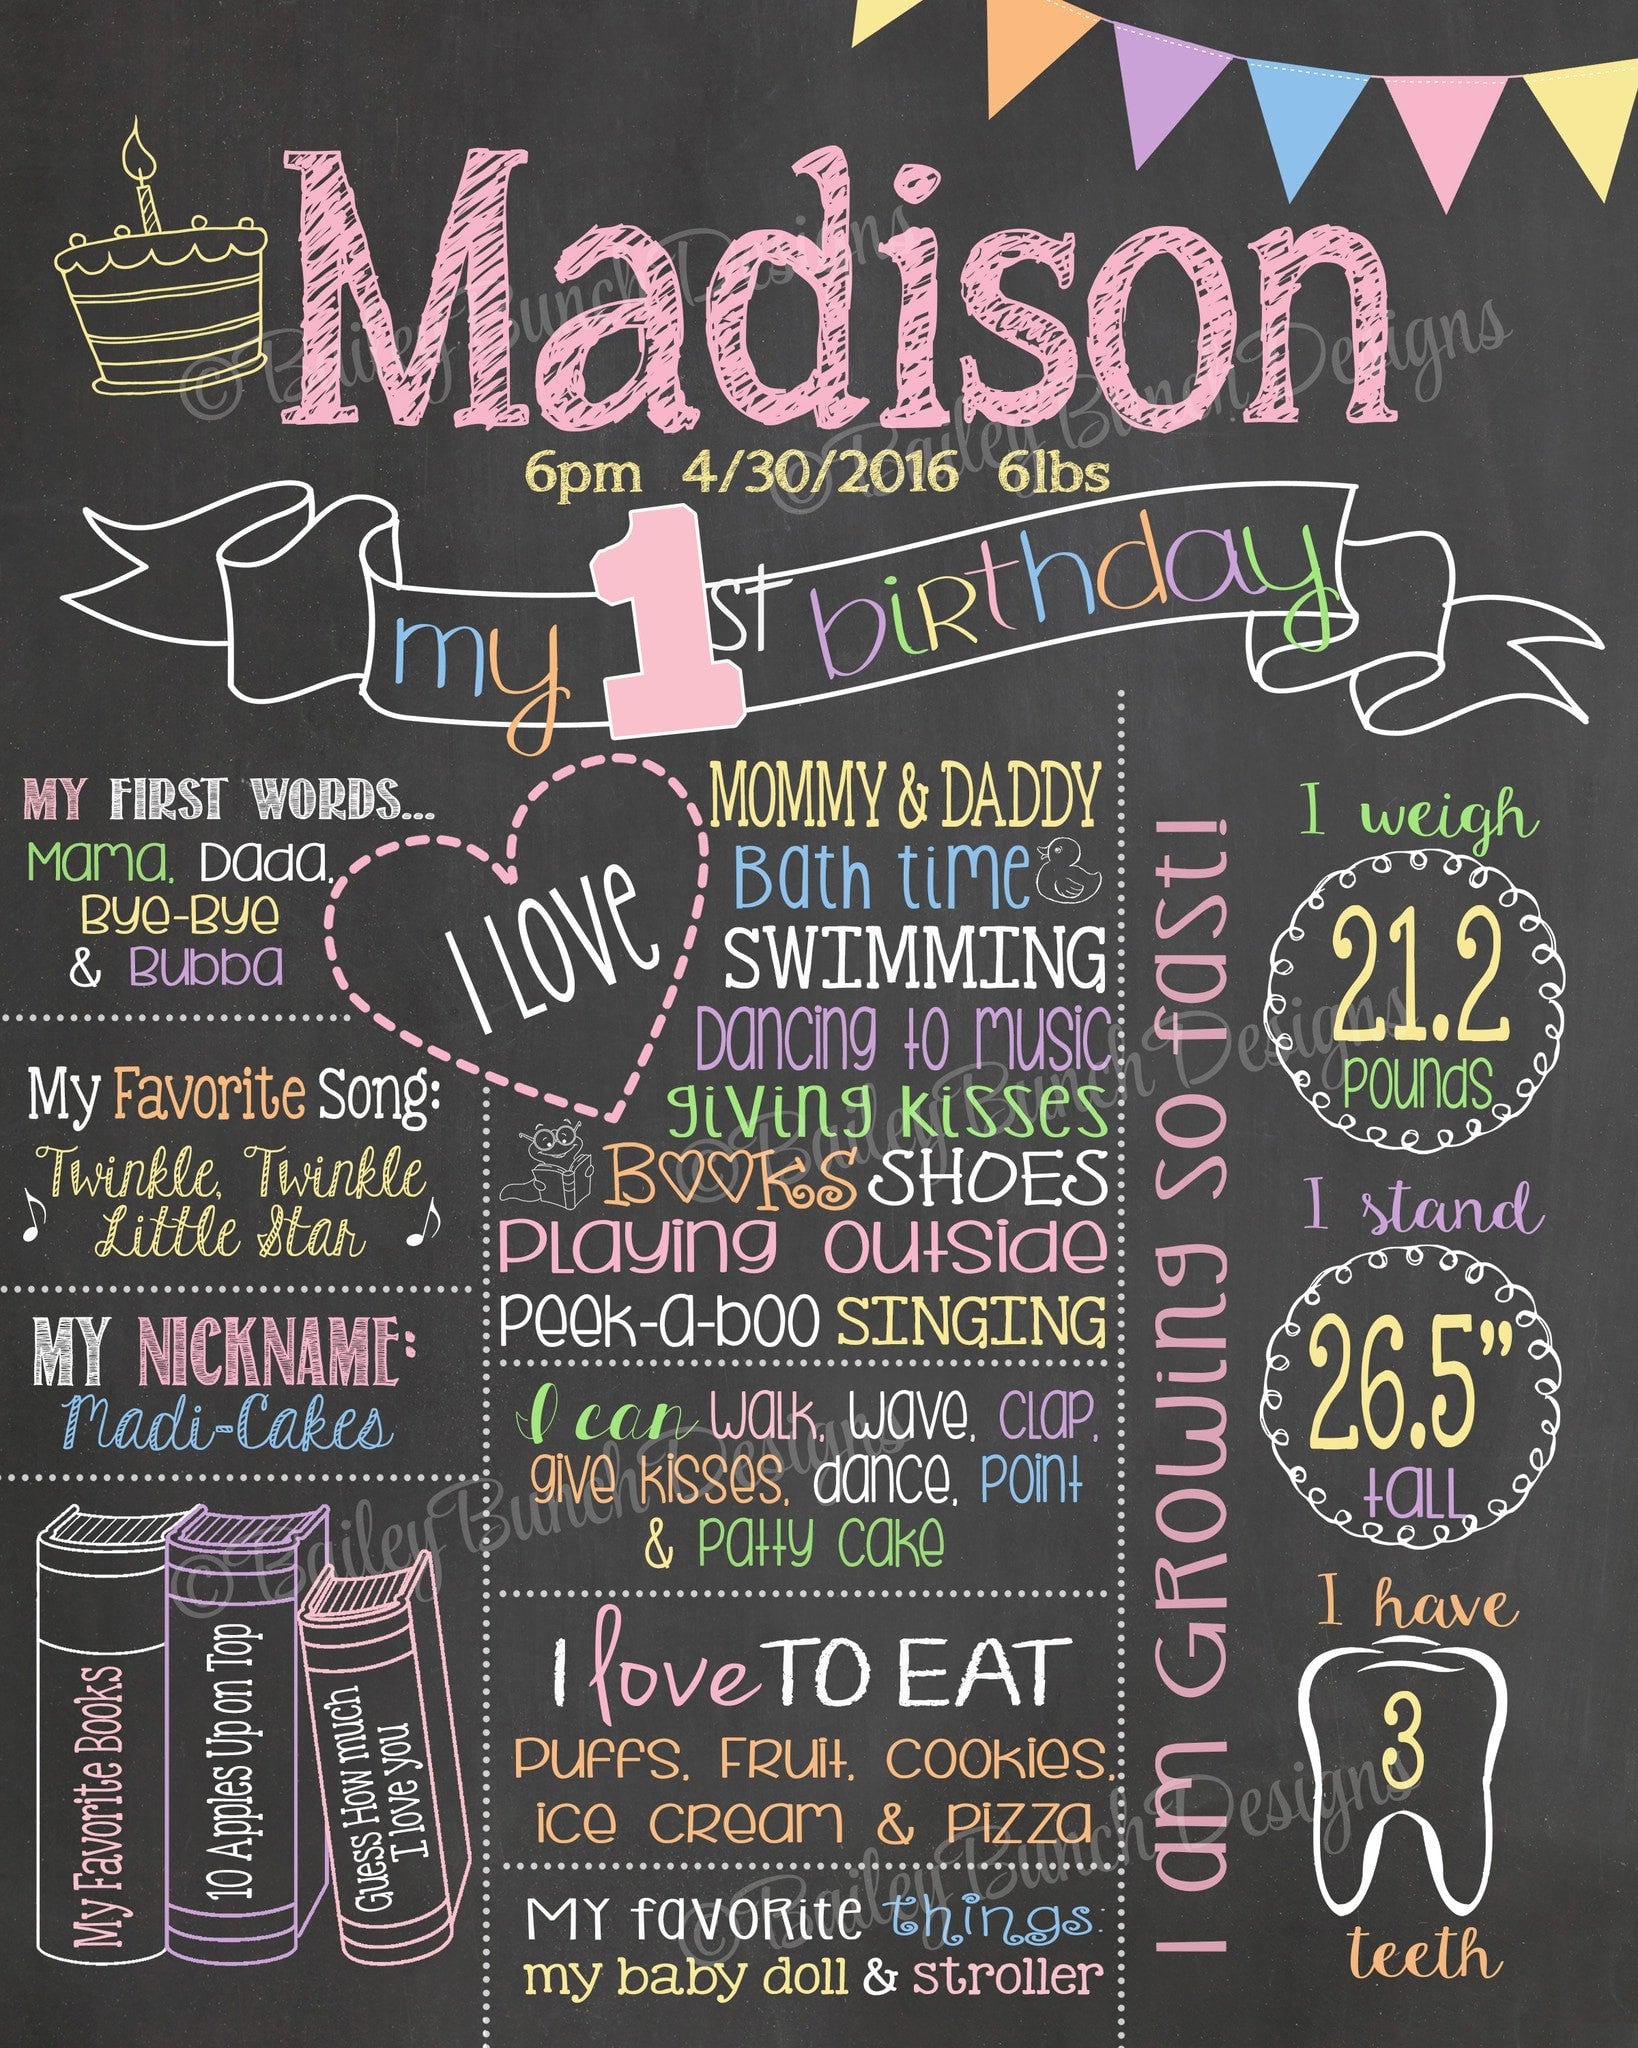 Madison
6pm 4/30/2016 6lbs
my 1st birthday
MY FIRST WORDS...
Mama, Dada,
Bye-Bye
& Bubba
I LOVE
MOMMY & DADDY
Bath time
SWIMMING
Dancing to music
giving kisses
BOOKS SHOES
Playing outside
Peek-a-boo SINGING
My Favorite Song:
Twinkle, Twinkle
Little Star
MY NICKNAME:
Madi-Cakes
My Favorite Books
10 Apples Up on Top
Guess How much
I love you
I can walk, wave, clap,
give kisses, dance, point
& patty cake
I love TO EAT
Puffs, Fruit, Cookies,
ice cream & pizza
MY favorite things:
my baby doll & stroller
I am GROWing so fast!
I weigh
21.2
pounds
I stand
26.5"
tall
I have
3
teeth
© Bailey Bunch Designs
© Bailey Bunch Designs
© Bailey Bunch Designs
© Bailey Bunch Designs
© Bailey Bunch Designs